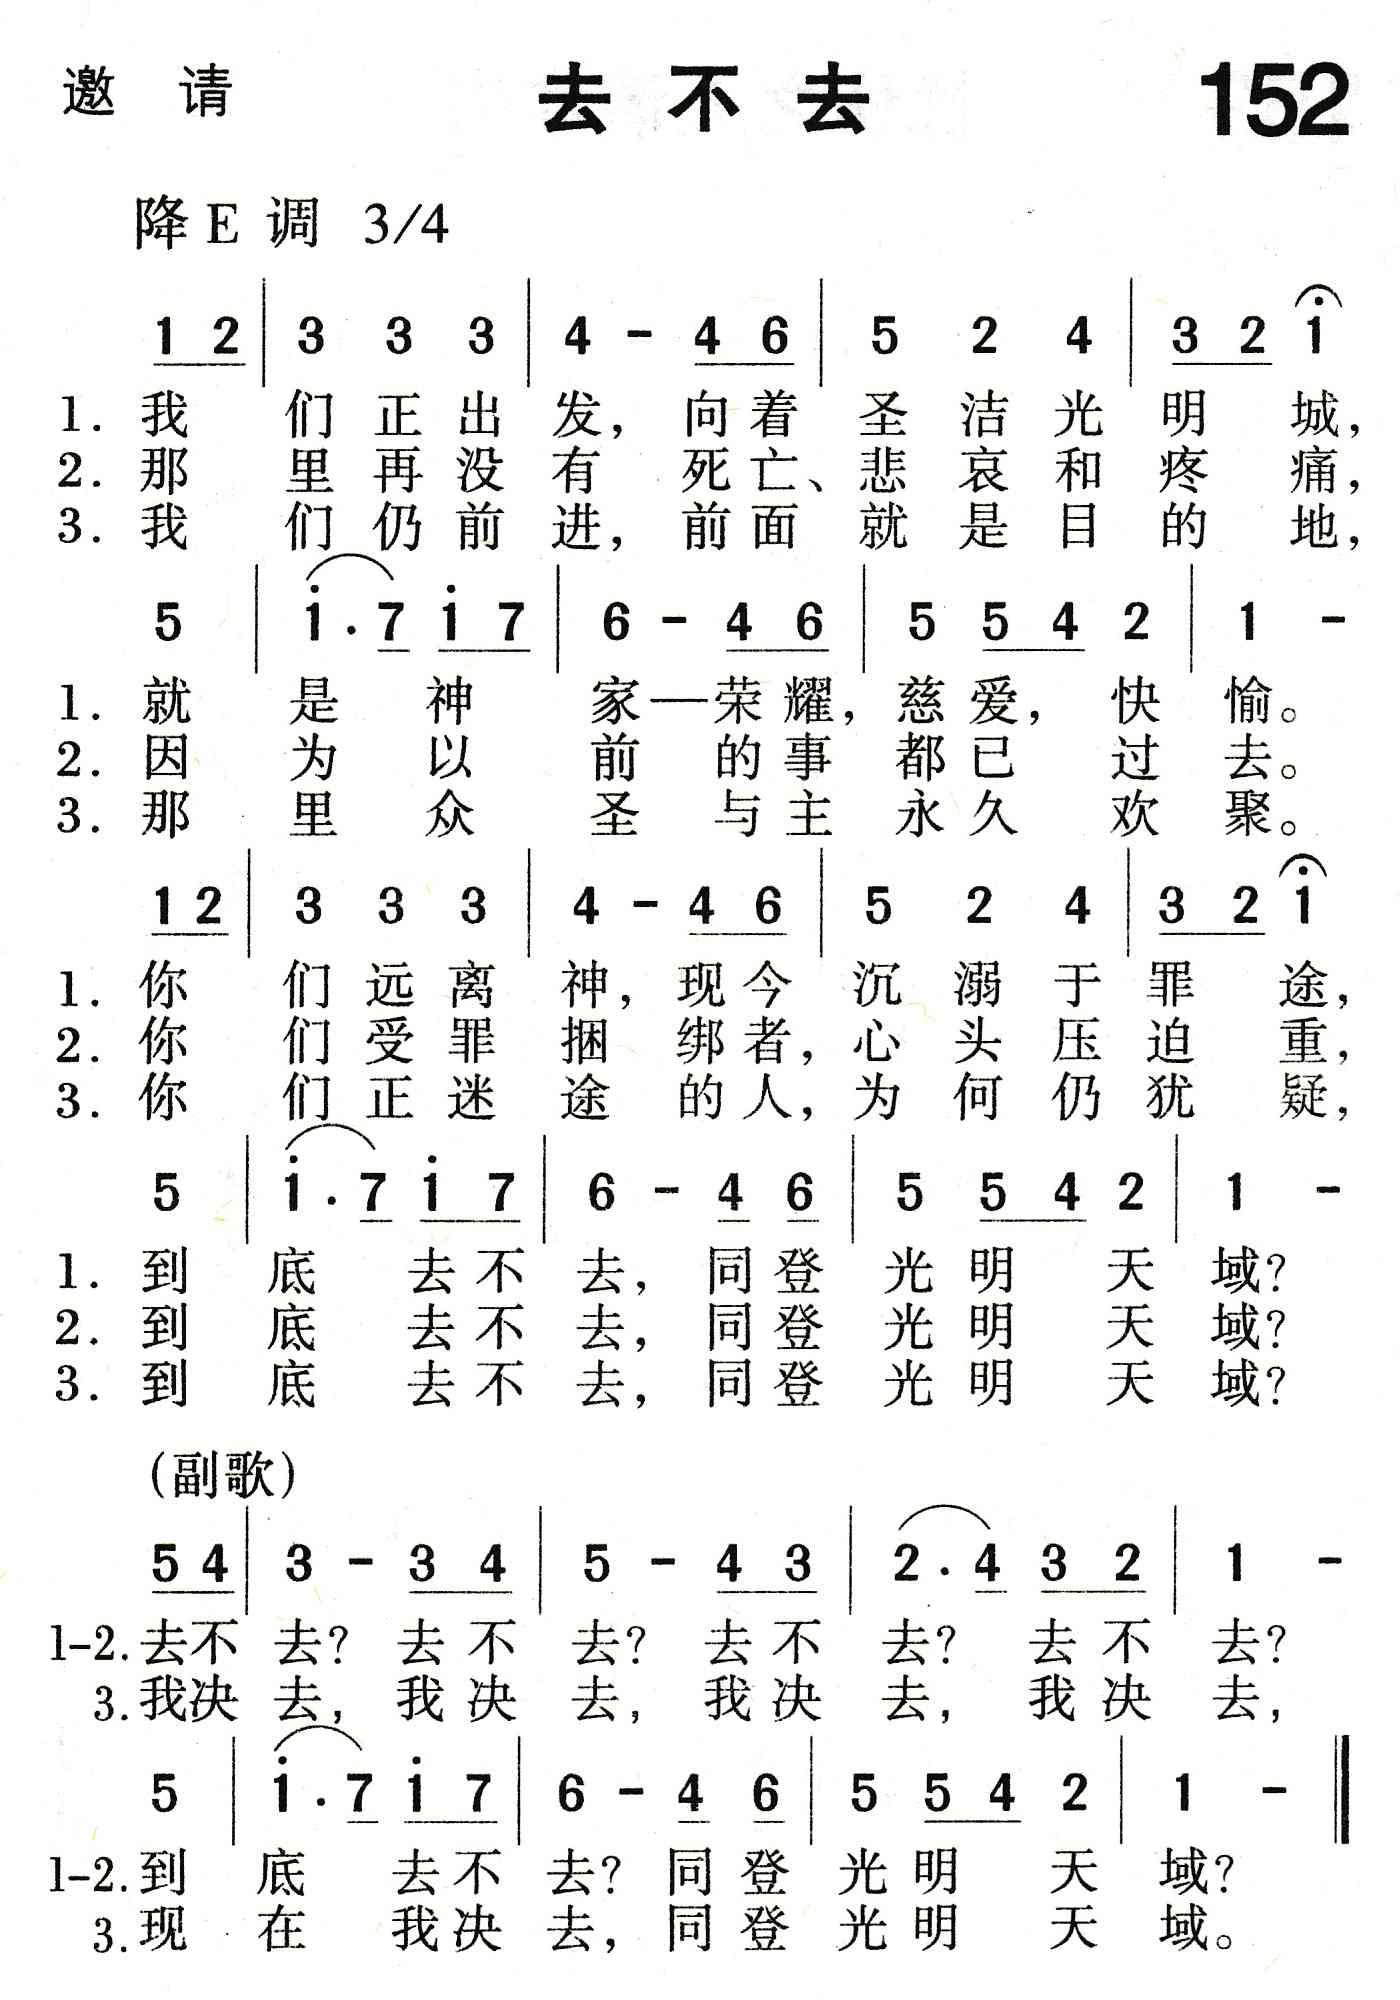 邀 请 去不去 152
降E调 3/4
1 2 | 3 3 3 | 4 - 4 6 | 5 2 4 | 3 2 1
1. 我们正出发，向着圣洁光明城，
2. 那里再没有死亡、悲哀和疼痛，
3. 我们仍前进，前面就是目的地，
5 | i . 7 i 7 | 6 - 4 6 | 5 5 4 2 | 1 -
1. 就是神家—荣耀，慈爱，快愉。
2. 因为以前的事都已过去。
3. 那里众圣与主永久欢聚。
1 2 | 3 3 3 | 4 - 4 6 | 5 2 4 | 3 2 1
1. 你们远离神，现今沉溺于罪途，
2. 你们受罪捆绑者，心头压迫重，
3. 你们正迷途的人，为何仍犹疑，
5 | i . 7 i 7 | 6 - 4 6 | 5 5 4 2 | 1 -
1. 到底去不去，同登光明天域？
2. 到底去不去，同登光明天域？
3. 到底去不去，同登光明天域？
（副歌）
5 4 | 3 - 3 4 | 5 - 4 3 | 2 . 4 3 2 | 1 -
1-2. 去不去？去不去？去不去？去不去？
3. 我决去，我决去，我决去，我决去，
5 | i . 7 i 7 | 6 - 4 6 | 5 5 4 2 | 1 -
1-2. 到底去不去？同登光明天域？
3. 现在我决去，同登光明天域。